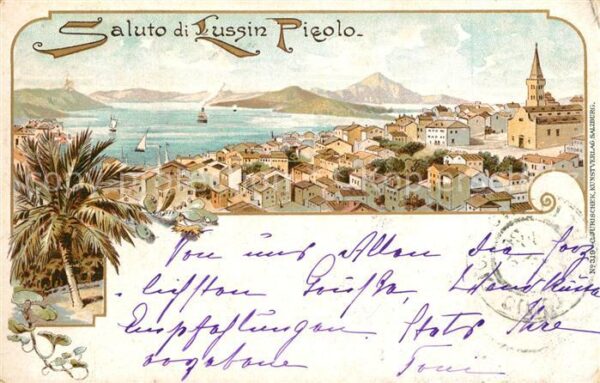 Saluto di Lussin Picolo.
No 319 C. JURISCHEK, KUNSTVERLAG SALZBURG.
Von uns Allen die herz
lichsten Grüße, Handküsse
Empfehlungen. Stets Ihre
ergebene Toni